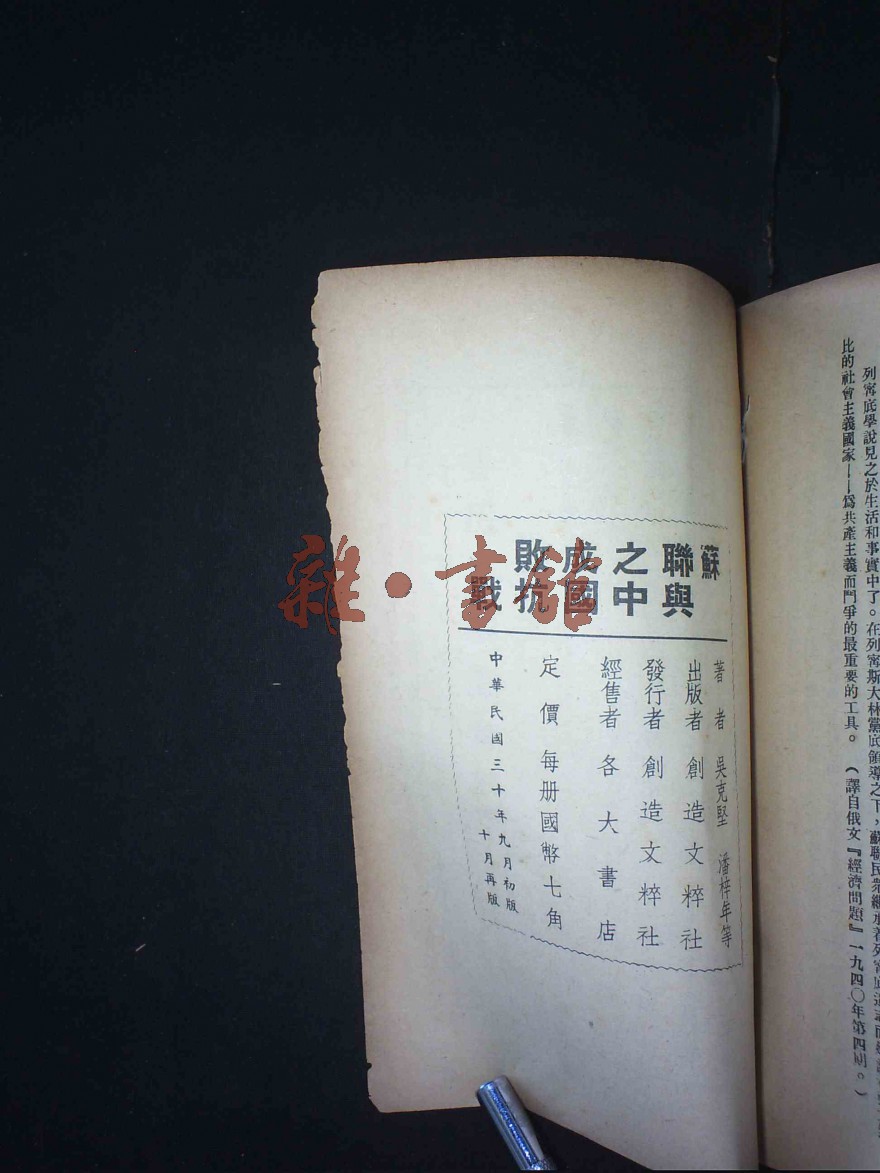 列寧底學說見之於生活和事實中了。在列寧斯大林黨底領導之下，蘇聯民衆繼承着列寧底
比的社會主義國家——爲共產主義而鬥爭的最重要的工具。（譯自俄文『經濟問題』一九四〇年第四期。）
蘇聯之成敗
與中國抗戰
著者 吳克堅 潘梓年等
出版者 創造文粹社
發行者 創造文粹社
經售者 各大書店
定價 每册國幣七角
中華民國三十年九月初版
十月再版
雜·書館